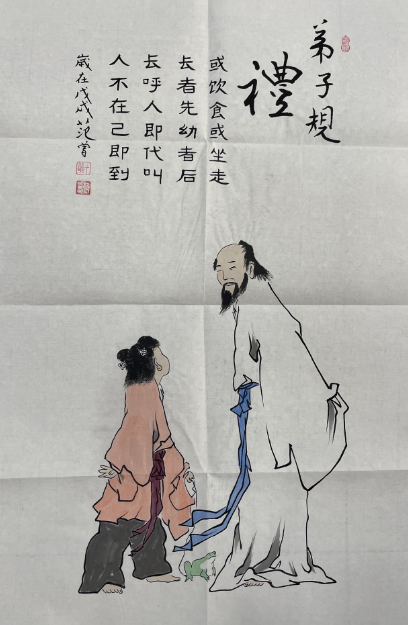 弟子规
禮
或饮食或坐走
长者先幼者后
长呼人即代叫
人不在己即到
岁在戊戌范曾